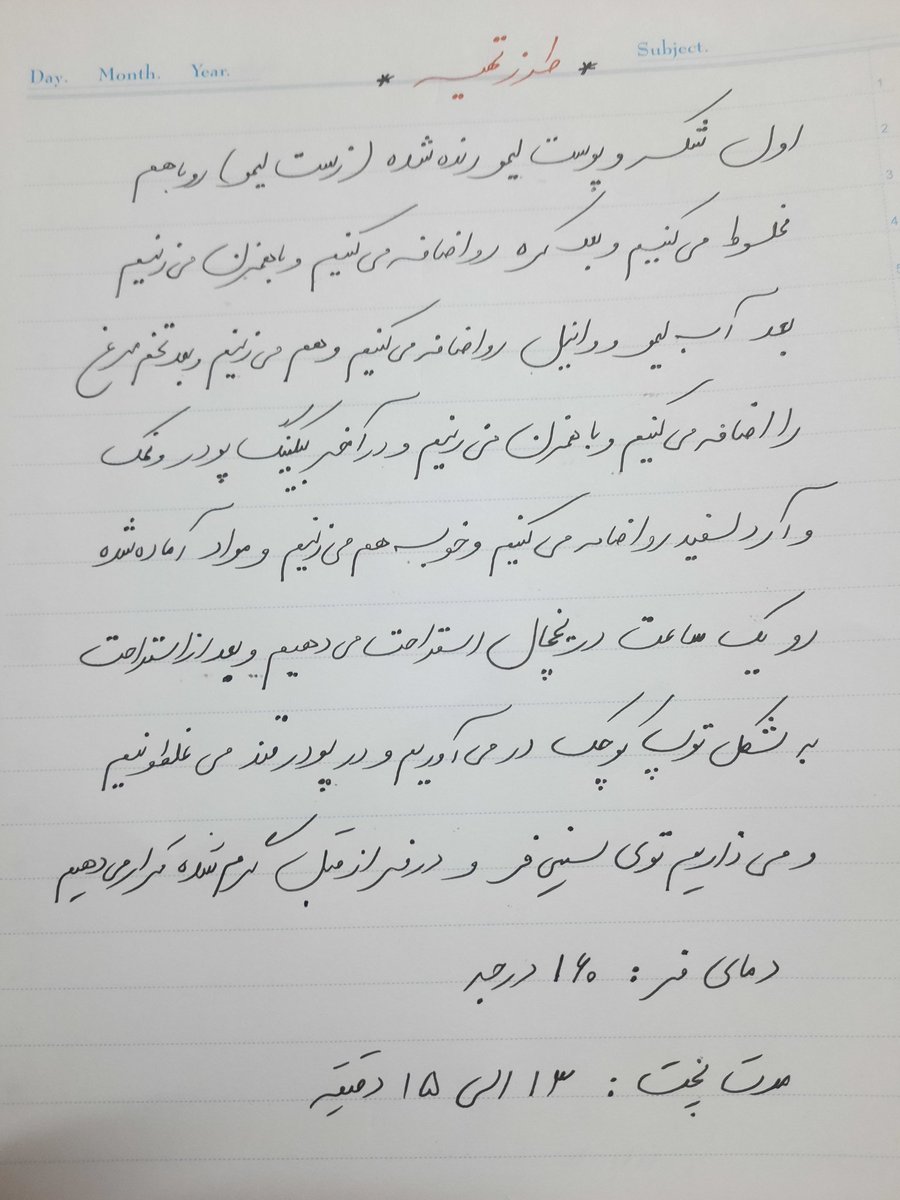 Day. Month. Year. Subject.
* طرز تهیه *
اول شکر و پوست لیمو رنده شده (زست لیمو) رو با هم
مخلوط می‌کنیم و بعد کره رو اضافه می‌کنیم و با همزن می‌زنیم
بعد آب لیمو و وانیل رو اضافه می‌کنیم و هم می‌زنیم و بعد تخم مرغ
را اضافه می‌کنیم و با همزن می‌زنیم و در آخر بیکینگ پودر و نمک
و آرد سفید رو اضافه می‌کنیم و خوب هم می‌زنیم و مواد آماده شده
رو یک ساعت در یخچال استراحت می‌دهیم و بعد از استراحت
به شکل توپ کوچک در می‌آوریم و در پودر قند می غلطونیم
و می ذاریم توی سینی فر و در فر از قبل گرم شده قرار می‌دهیم
دمای فر : ۱۶۰ درجه
مدت پخت : ۱۳ الی ۱۵ دقیقه
1
2
3
4